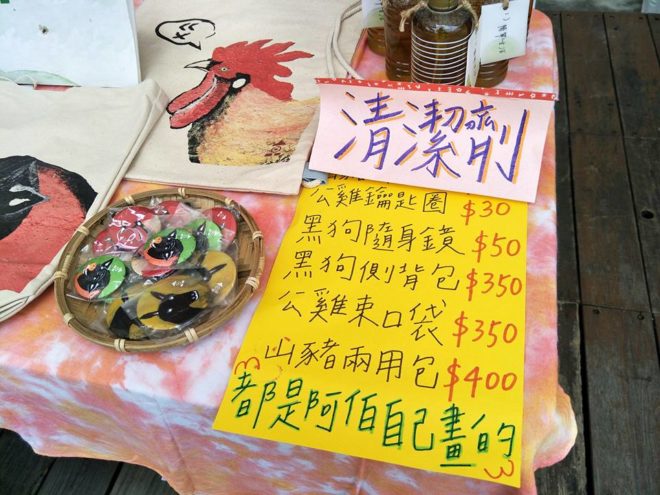 清潔劑
公雞鑰匙圈 $30
黑狗隨身鏡 $50
黑狗側背包 $350
公雞束口袋 $350
山豬兩用包 $400
都是阿伯自己畫的